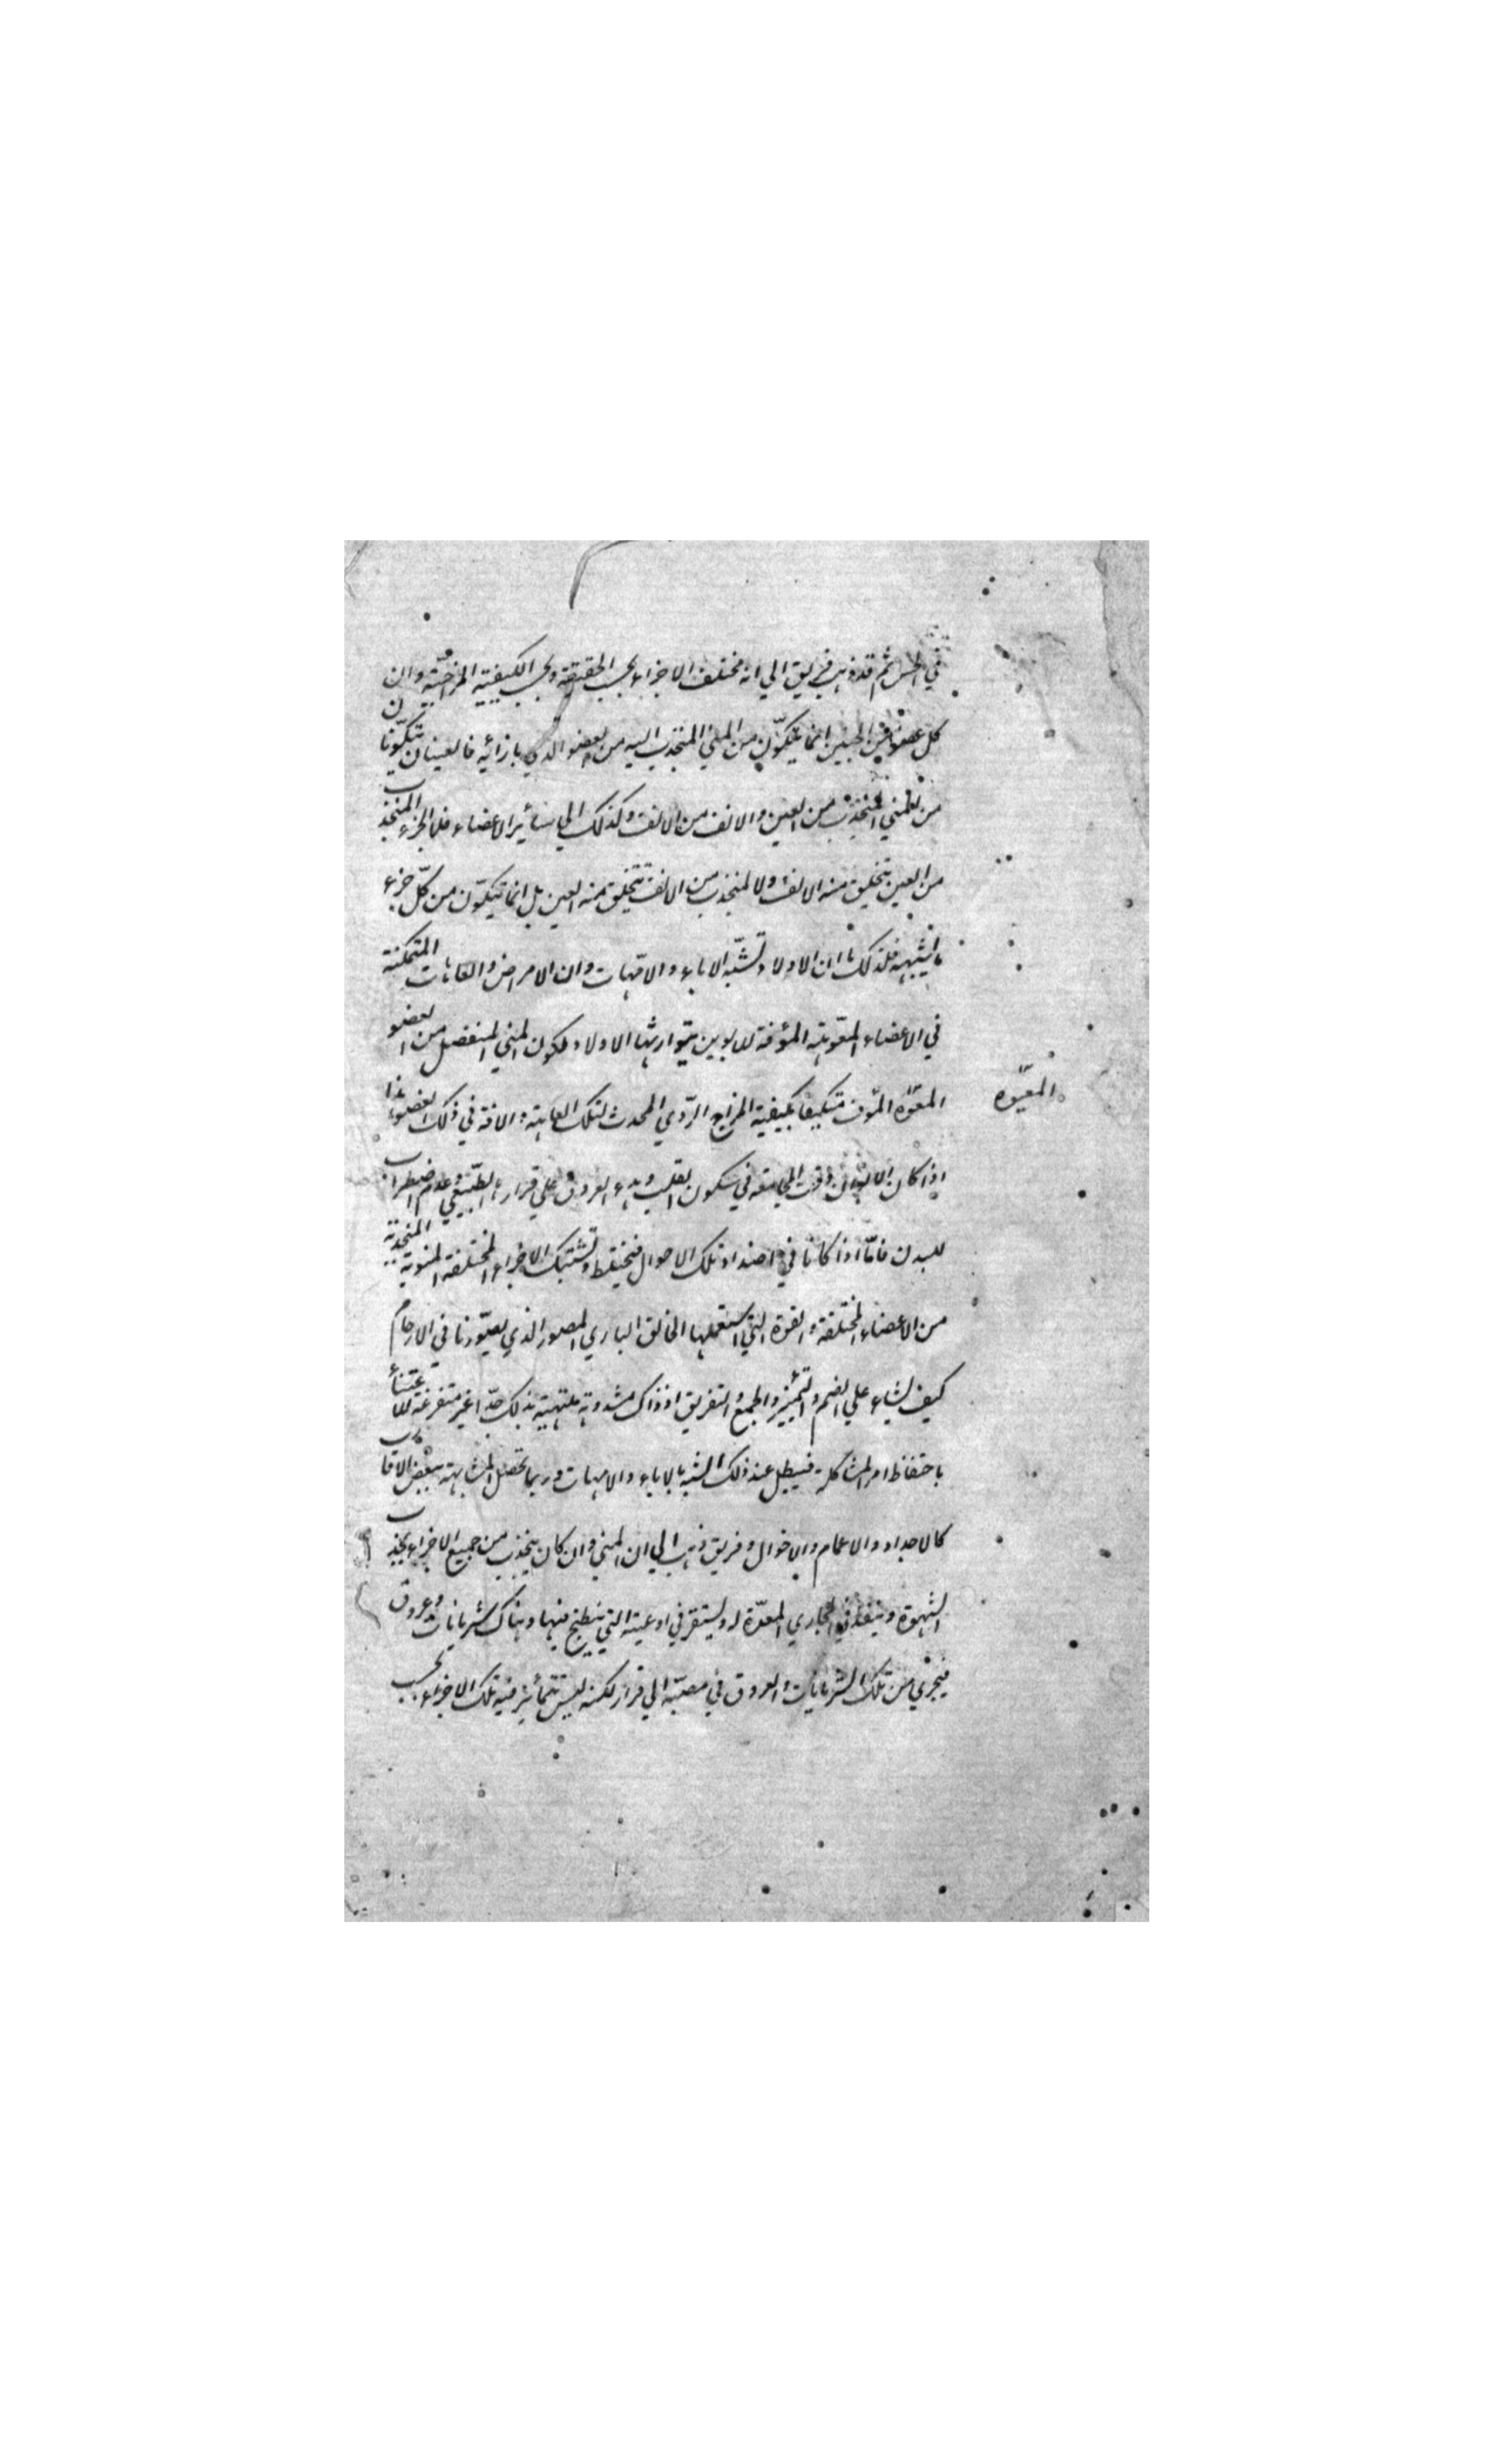 في الحس ثم قد ذهب فريق الي انه مختلف الاجزاء بحسب الحقيقة وبحسب الكيفية المزاجية وان
كل عضو من الجنين انما يتكون من المني المنجذب اليه من العضو الذي بازائه فالعينان تتكونان
من المني المنجذب من العين والانف من الانف وكذلك الي سائر الاعضاء فلا الجزء المنجذب
من العين يتخلق منه الانف ولا المنجذب من الانف يتخلق منه العين بل انما يتكون من كل جزء
ما يشبهه فلذلك ما ان الاولاد تشبه الاباء والامهات وان الامراض والعاهات المتمكنة
في الاعضاء المعوهة المؤفة للابوين يتوارثها الاولاد لكون المني المنفصل من العضو
المعوه المؤف متكيفا بكيفية المزاج الردي المحدث لتلك العاهة والافة في ذلك العضو هذا
المعيوه
اذا كان الابوان وقت المجامعة في سكون القلب وهدء العروق علي قرارها الطبيعي وعدم اضطراب
للبدن فاما اذا كانا في اضداد تلك الاحوال فتختلط وتشتبك الاجزاء المختلفة المنوية المنجذبة
من الاعضاء المختلفة والقوة التي استعملها الخالق الباري المصور الذي يصورنا في الارحام
كيف يشاء علي الضم والتمييز والجمع والتفريق اذ ذاك مشدوهة ملتهية بذلك جدا غير متفرغة للاعتناء
باحتفاظ امر المشاكلة فيبطل عند ذلك الشبه بالاباء والامهات وربما تحصل المشابهة ببعض الاقارب
كالاجداد والاعمام والاخوال وفريق ذهب الي ان المني وان كان ينجذب من جميع الاجزاء بجذب
الشهوة وينفذ في المجاري المعدة له ويستقر في اوعيته التي ينطبخ فيها وهناك شريانات وعروق
فيجري من تلك الشريانات والعروق في مصبه الي قرار لكنه ليس تتمايز فيه تلك الاجزاء بحسب